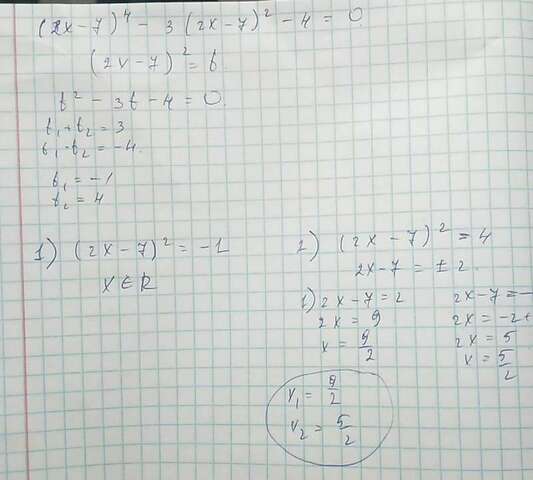 (2x-7)⁴ - 3(2x-7)² - 4 = 0
(2x-7)² = t
t² - 3t - 4 = 0
t₁ + t₂ = 3
t₁ · t₂ = -4
t₁ = -1
t₂ = 4
1) (2x-7)² = -1
x ∈ R
2) (2x-7)² = 4
2x-7 = ±2
1) 2x-7 = 2
2x = 9
x = 9/2
2x-7 = -
2x = -2+
2x = 5
x = 5/2
x₁ = 9/2
x₂ = 5/2